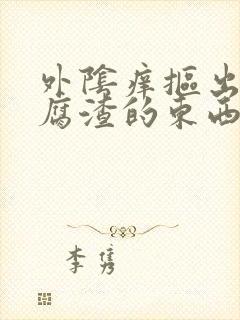 外陰痒摳出
腐渣的东西
李隽